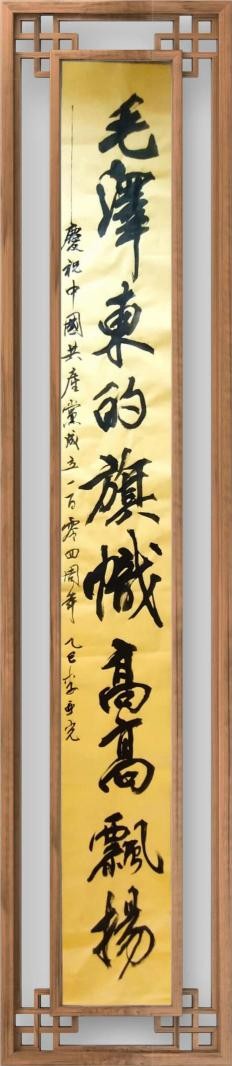 毛澤東的旗幟高高飄揚
——慶祝中國共產黨成立一百零四周年 乙巳李亚光